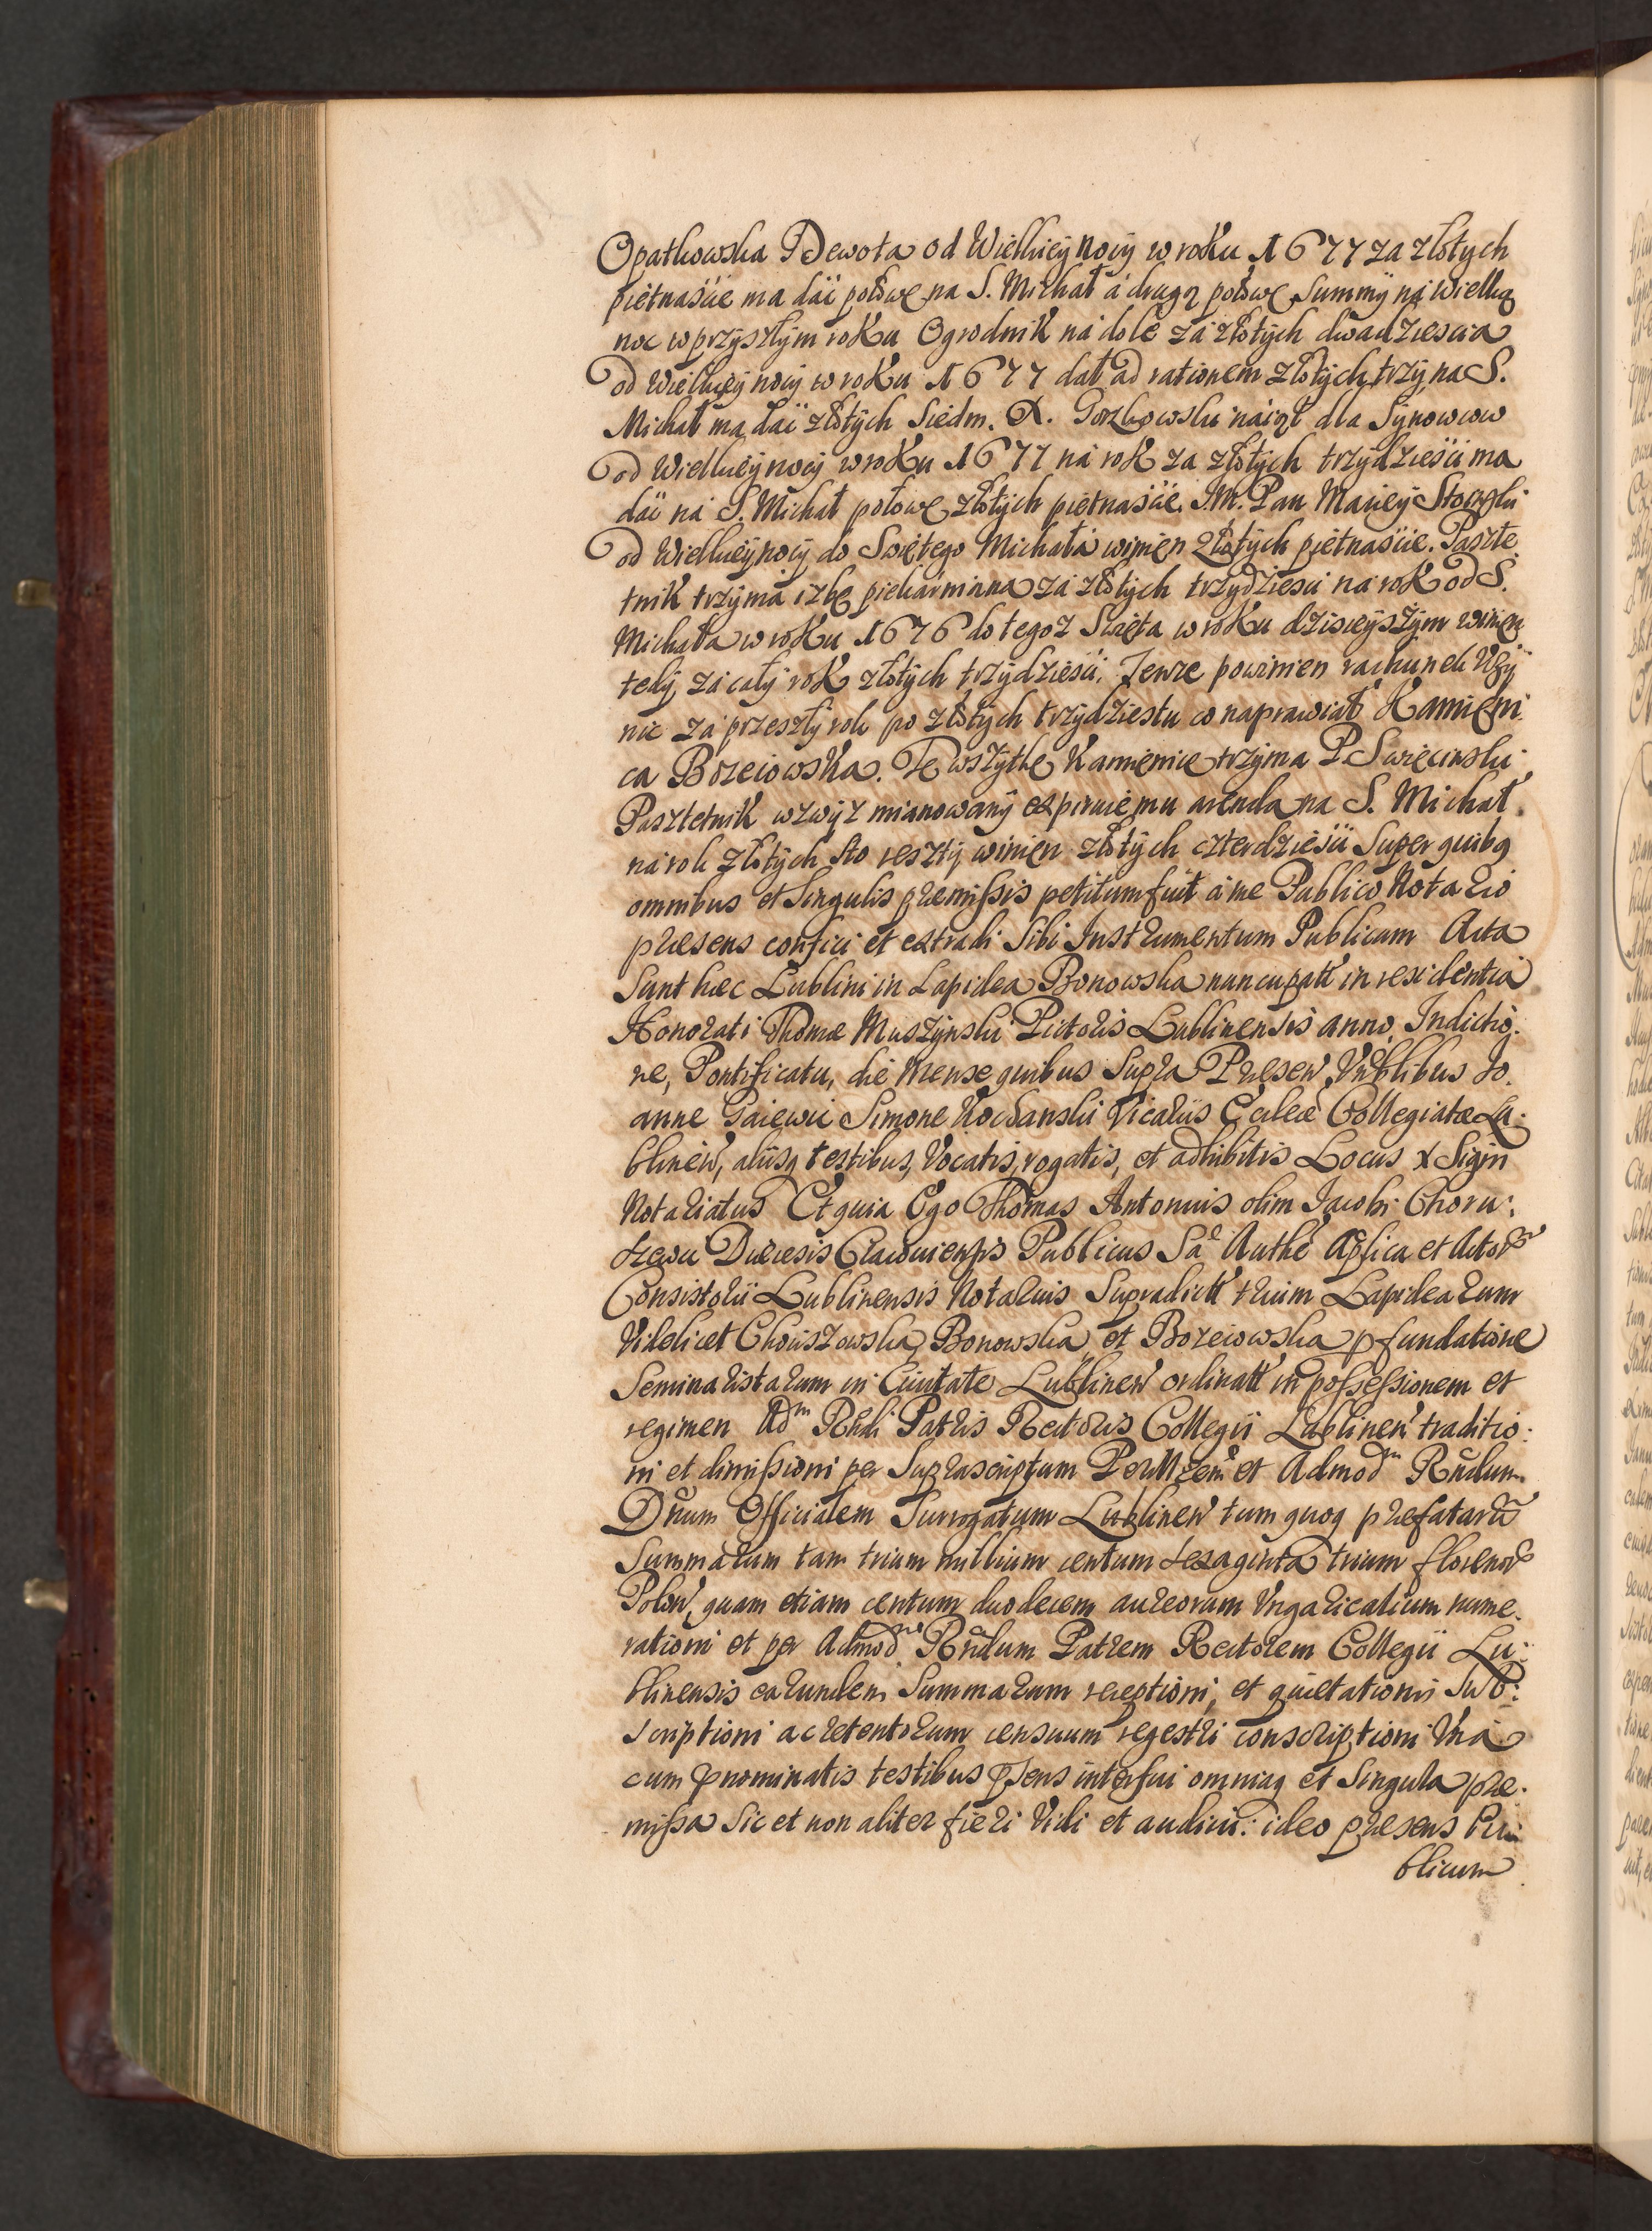 Opatkowska Dewota od Wielkieÿ Nocÿ w roKu 1677 za złotÿch
piętnaście ma dać połowę na S. Michał á drugą połowę Summÿ ná Wielką
noc w przÿszłÿm roKu Ogrodnik ná dole zá złotÿch dwadziescia
od Wielkieÿ nocÿ w roKu 1677 dał ad rationem złotÿch trzÿ na S.
Michał ma dać złotÿch Siedm. X. Gorzkowski náiął dla Sÿnowcow
od Wielkieÿ nocÿ w roKu 1677 ná roK za złotÿch trzÿdzieści ma
dać ná S. Michał połowę złotÿch piętnaście. J.M. Pan Macieÿ
od Wielkieÿ nocÿ do Swiętego Michałá winien złotÿch piętnaście. Paszte
tnik trzÿmá izbę piekárninna zá złotÿch trzÿdziesci ná roK od S.
Michała w roKu 1676 do tegoż Swięta w roKu dzisieÿszÿm winien
tedÿ zá cáłÿ roK złotÿch trzÿdzieści. Ieszcze powinien rachunek Vczÿ
nic zá przeszłÿ rok po złotÿch trzÿdziestu co naprawiał Kamieni
ca BozeiowsKa. Tę wszÿtkę Kamienicę trzÿma P. Swięcinski
Pasztetnik wzwÿż mianowanÿ expiruie mu arenda na S. Michał.
ná rok złotÿch sto resztÿ winien złotÿch czterdzieści Super quibq
omnibus et Singulis præmißis petitum fuit á me Publico Notario
præsens confici et extradi Sibi Instrumentum Publicum Acta
Sunt hæc Lublini in Lapidea Bonowska nuncupatt in residentia
Honorati Thomæ Muszÿnski Pictoris Lublinensis anno, Indictio:
ne, Pontificatu, die Mense quibus Supra Præsen Vnblibus Jo.
anne Gaiewic Simone Kochanski Vicariis Eccleæ Collegiatæ Lu:
blinen, aliisq testibus, Vocatis, rogatis, et adhibitis Locus x Signi
Notariatus Et quia Ego Thomas Antonius olim Jacobi
Diæcesis Cracouiensis Publicus Sa Authe Aplica et Actor
Consistorii Lublinensis Notarius Supradictt trium Lapidearum
Videlicet Bonowska, et Bozeiowska p fundatione
Seminaristarum in Ciuitate Lublinen ordinatt in poßeßionem et
regimen Adm Rndi Patris Rectoris Collegii Lublinen traditio:
ni et dimißioni per Suprascriptum PerIllrem et Admodm Rndum
Dnum Officialem Surrogatum Lublinen tum quoq præfatarū
Summarum tam trium millium centum sexaginta trium florenor
Polon, quam etiam centum duodecem aureorum Vngaricalium nume.
rationi et per Admodm Rndum Patrem Rectorem Collegii Lu:
blinensis earundem Summarum receptioni, et quietationis Sub:
scriptioni ac retentorum censuum regestri conscriptioni Vná
cum pnominatis testibus psens interfui omniaq et Singula præ.
mißa Sic et non aliter fieri Vidi et audiui: ideo præsens Pu:
blicum